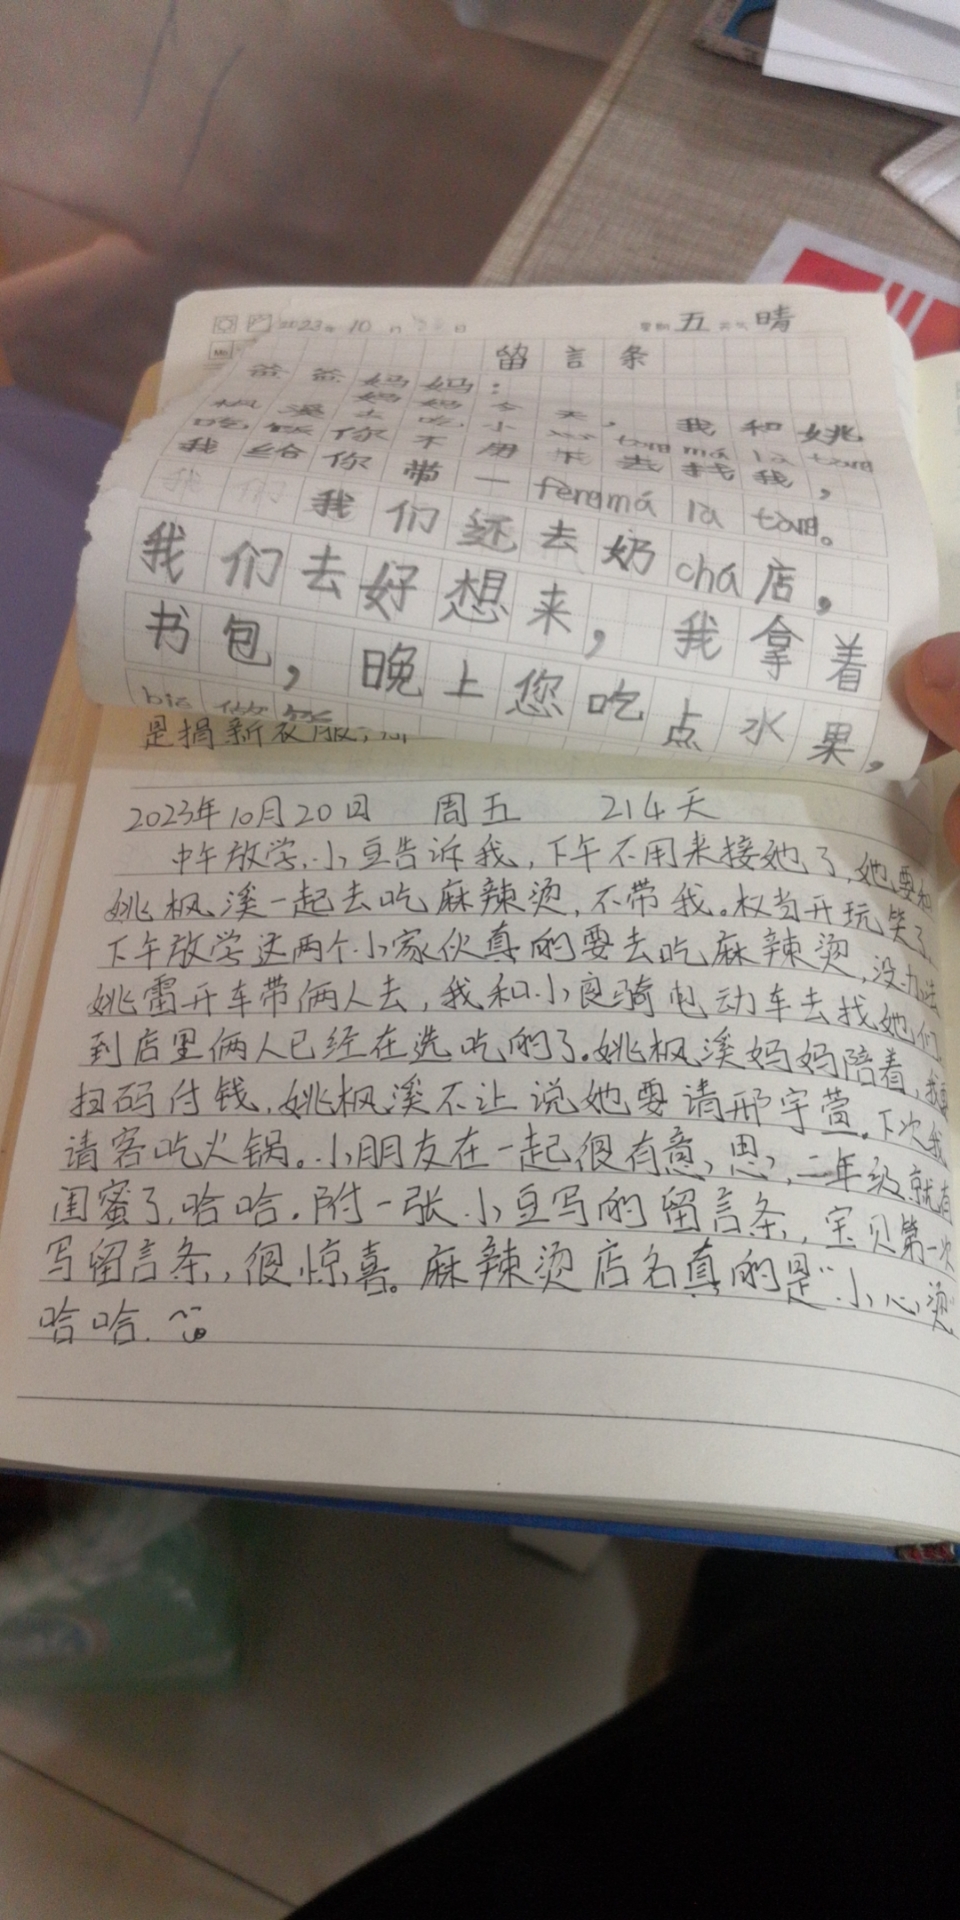 2023年 10月 日 星期 五 天气 晴
留言条
爸爸妈妈：
妈妈今天，我和姚
枫溪去吃小心tang má là tang
吃饭你不用来去找我，
我给你带一fèngmá là tang。
我们 我们还去奶chá店，
我们去好想来，我拿着
书包，晚上您吃点水果，
bié 做饭
是搞新衣服，
2023年10月20日 周五 214天
中午放学，小豆告诉我，下午不用来接她了，她要和
姚枫溪一起去吃麻辣烫，不带我。权当开玩笑了
下午放学这两个小家伙真的要去吃麻辣烫，没办法
姚雷开车带俩人去，我和小良骑电动车去找她们，
到店里俩人已经在选吃的了。姚枫溪妈妈陪着，我要
扫码付钱，姚枫溪不让说她要请邢宇萱。下次我
请客吃火锅。小朋友在一起很有意思，二年级就有
闺蜜了，哈哈。附一张小豆写的留言条，宝贝第一次
写留言条，很惊喜。麻辣烫店名真的是“小心烫”
哈哈.